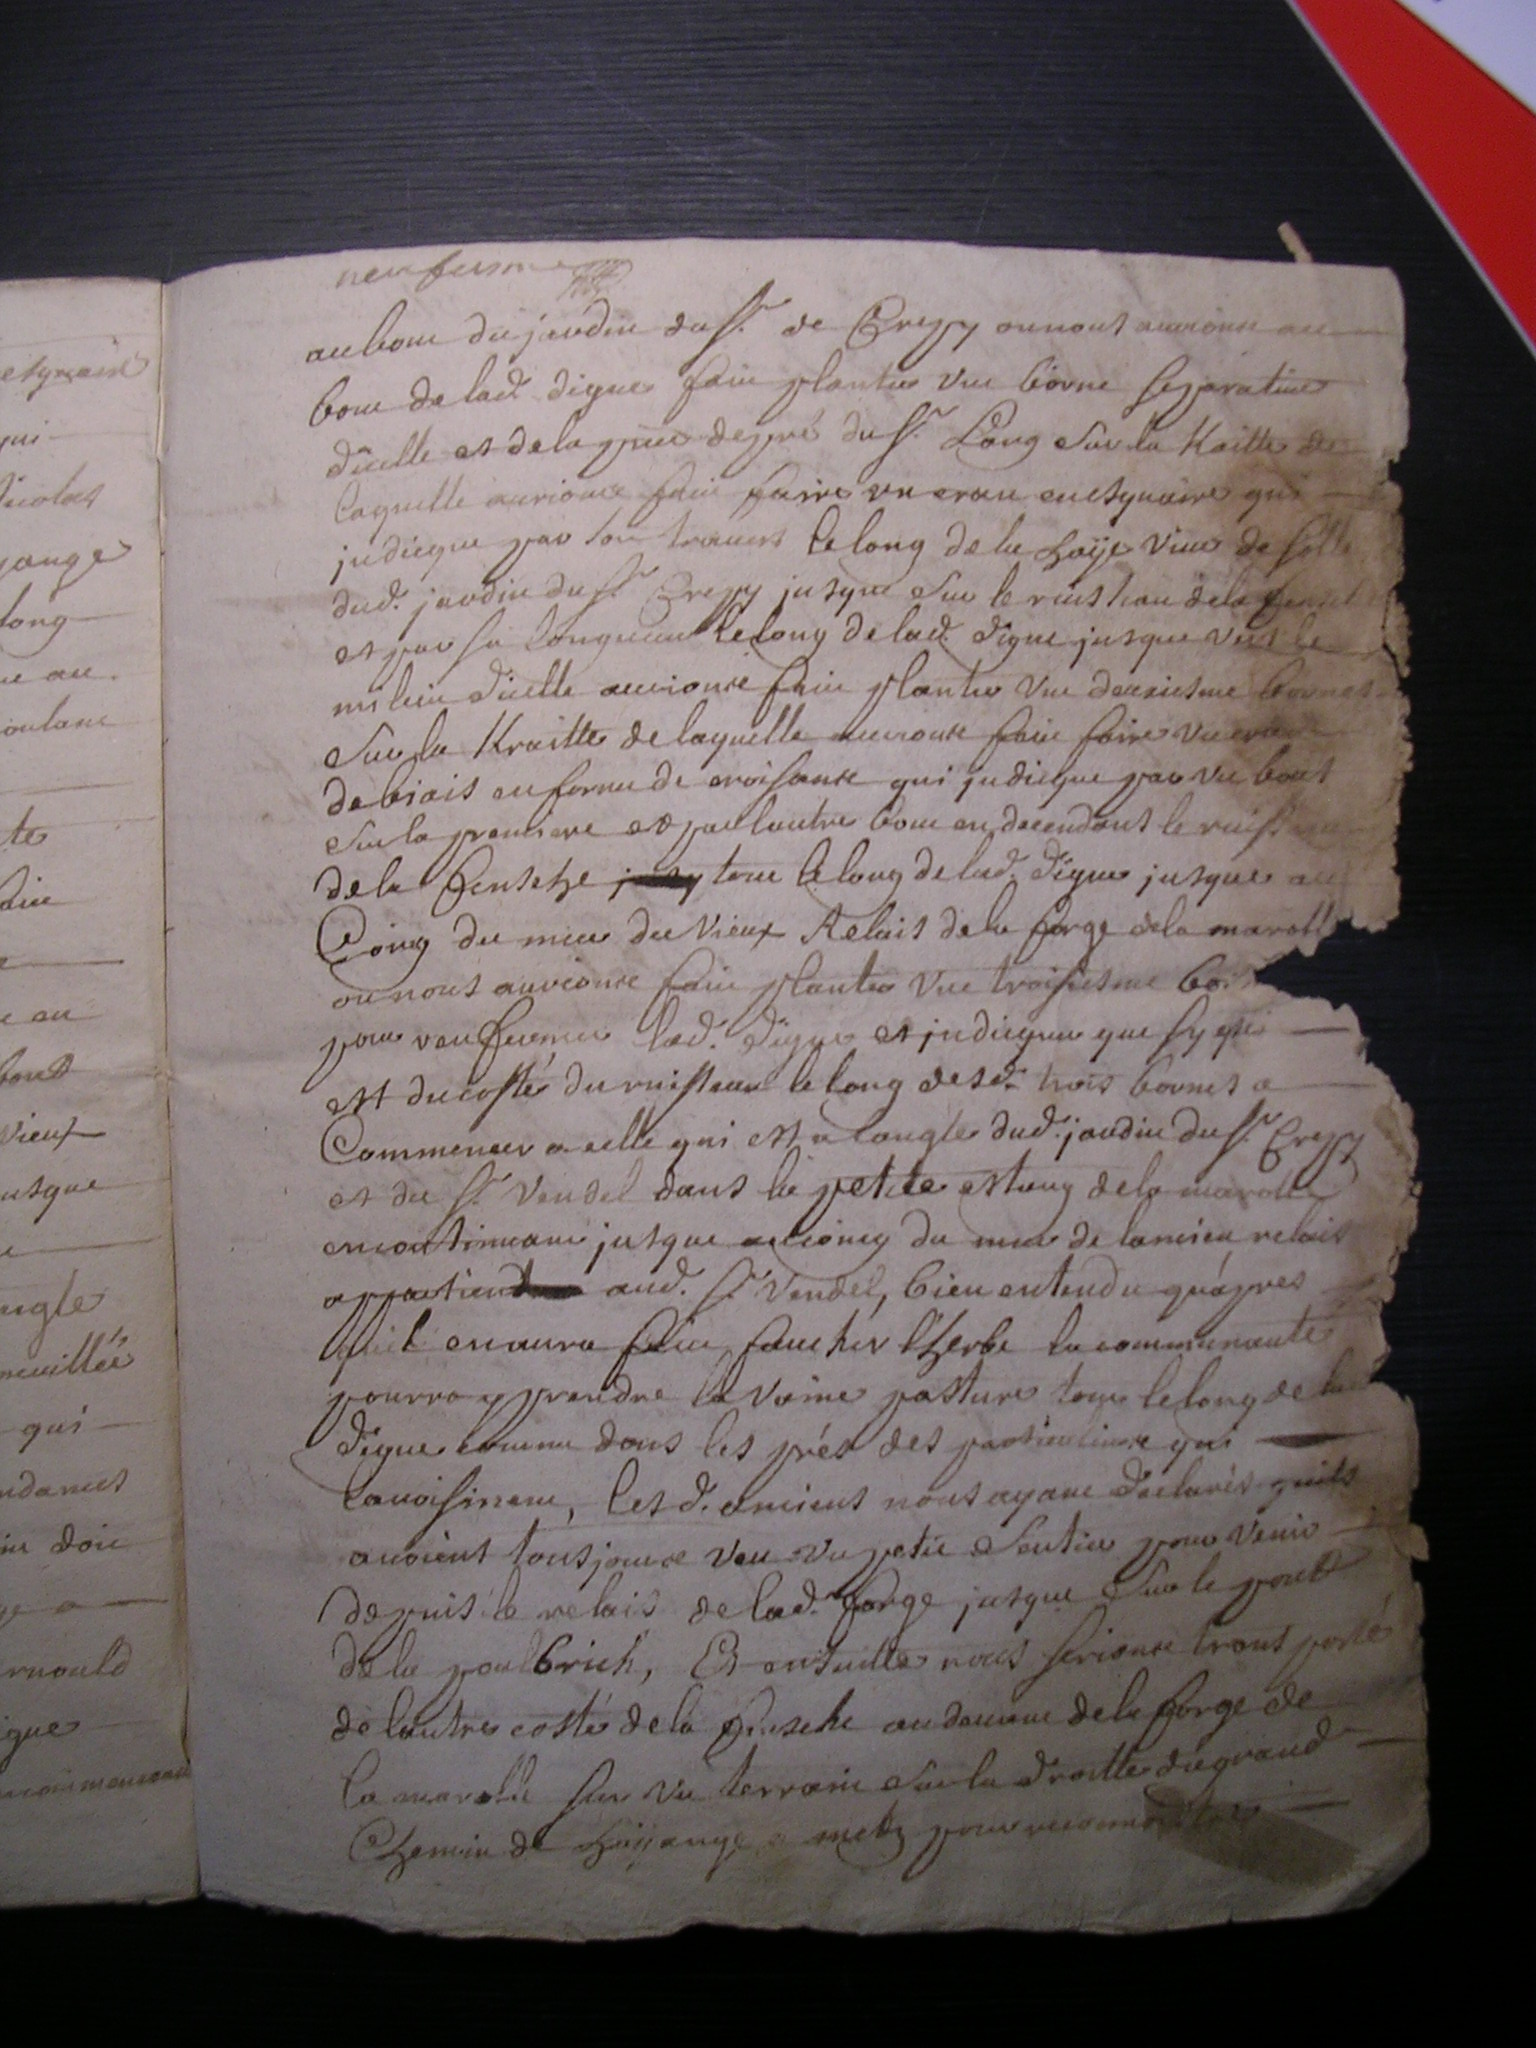 neuf
au bout du jardin du Sr. de Crepy ou nous aurions au
bout de lad. digue fait planter une borne separative
dicelle et de la piece de pré du Sr. Lang sur la Kaitte de
laquelle aurionse fait faire un cran en esquaire qui
indicque par son travers le long de la haÿe vive de
dud. jardin du Sr. Crepy jusque sur le ruisseau de la
et par sa longueur le long de lad. digue jusque vers le
milieu dicelle aurionse fait planter une deuxiesme borne
sur la Kraitte de laquelle aurionse fait faire un cran
de biais en forme de croissante qui indicque par un bout
sur la premiere et par lautre bout en decendant le
de la Fensche tout le long de lad. digue jusque au
Coing du mur du vieux Relais de la forge de la
ou nous aurionse fait planter une troisiesme
pour renfermer lad. digue et indicquer que
est du costé du ruisseau le long desd. trois bornes a
Commencer a celle qui est a langle dud. jardin du Sr. Crepy
et du Sr. Vendel dans le petite estang de la marolle
en continuant jusque au coing du mur de lancien relais
appartient aud. Sr. Vendel, bien entendu qu'apres
quil en aura fait faucher l'herbe la communauté
pourra y prendre la vaine pasture tout le long de lad
digue comme dans les prés des particulierse qui
lavoisinent, lesd. anciens nous ayant declarés quils
avoient tousjourse veu un petit sentier pour venir
depuis le relais de lad. forge jusque sur le pont
de la poulbrich, Et ensuitte nous serionse transporté
de lautre costé de la Fensche au devant de la forge de
la marolle sur un terrain sur la droitte du grand
Chemin de haÿange a metz pour
etz
qui
Nicolas
yange
long
au
te
fait
au
bout
vieux
usque
angle
qui
ndances
doit
rnould
igue